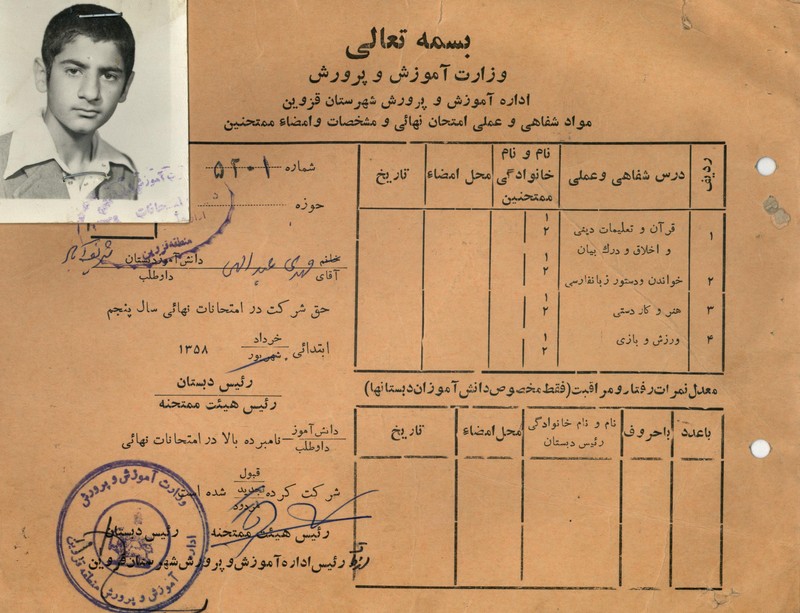 بسمه تعالی
وزارت آموزش و پرورش
اداره آموزش و پرورش شهرستان قزوین
مواد شفاهی و عملی امتحان نهائی و مشخصات و امضاء ممتحنین
شماره ۵۲۰۱
حوزه
دانش آموز دبستان
خانم
آقای مهدی عبدالهی داوطلب
حق شرکت در امتحانات نهائی سال پنجم
ابتدائی خرداد
شهریور ۱۳۵۸
رئیس دبستان
رئیس هیئت ممتحنه
دانش آموز
داوطلب نامبرده بالا در امتحانات نهائی
شرکت کرده قبول
تجدید
مردود شده است
رئیس هیئت ممتحنه رئیس دبستان
رئیس اداره آموزش و پرورش شهرستان قزوین
ردیف درس شفاهی و عملی نام و نام خانوادگی ممتحنین محل امضاء تاریخ
۱ قرآن و تعلیمات دینی و اخلاق و درك بیان ۱ ۲
۲ خواندن و دستور زبان فارسی ۱ ۲
۳ هنر و کار دستی ۱ ۲
۴ ورزش و بازی ۱ ۲
معدل نمرات رفتار و مراقبت (فقط مخصوص دانش آموزان دبستانها)
باعدد باحروف نام و نام خانوادگی رئیس دبستان محل امضاء تاریخ
وزارت آموزش و پرورش
اداره آموزش و پرورش منطقه قزوین